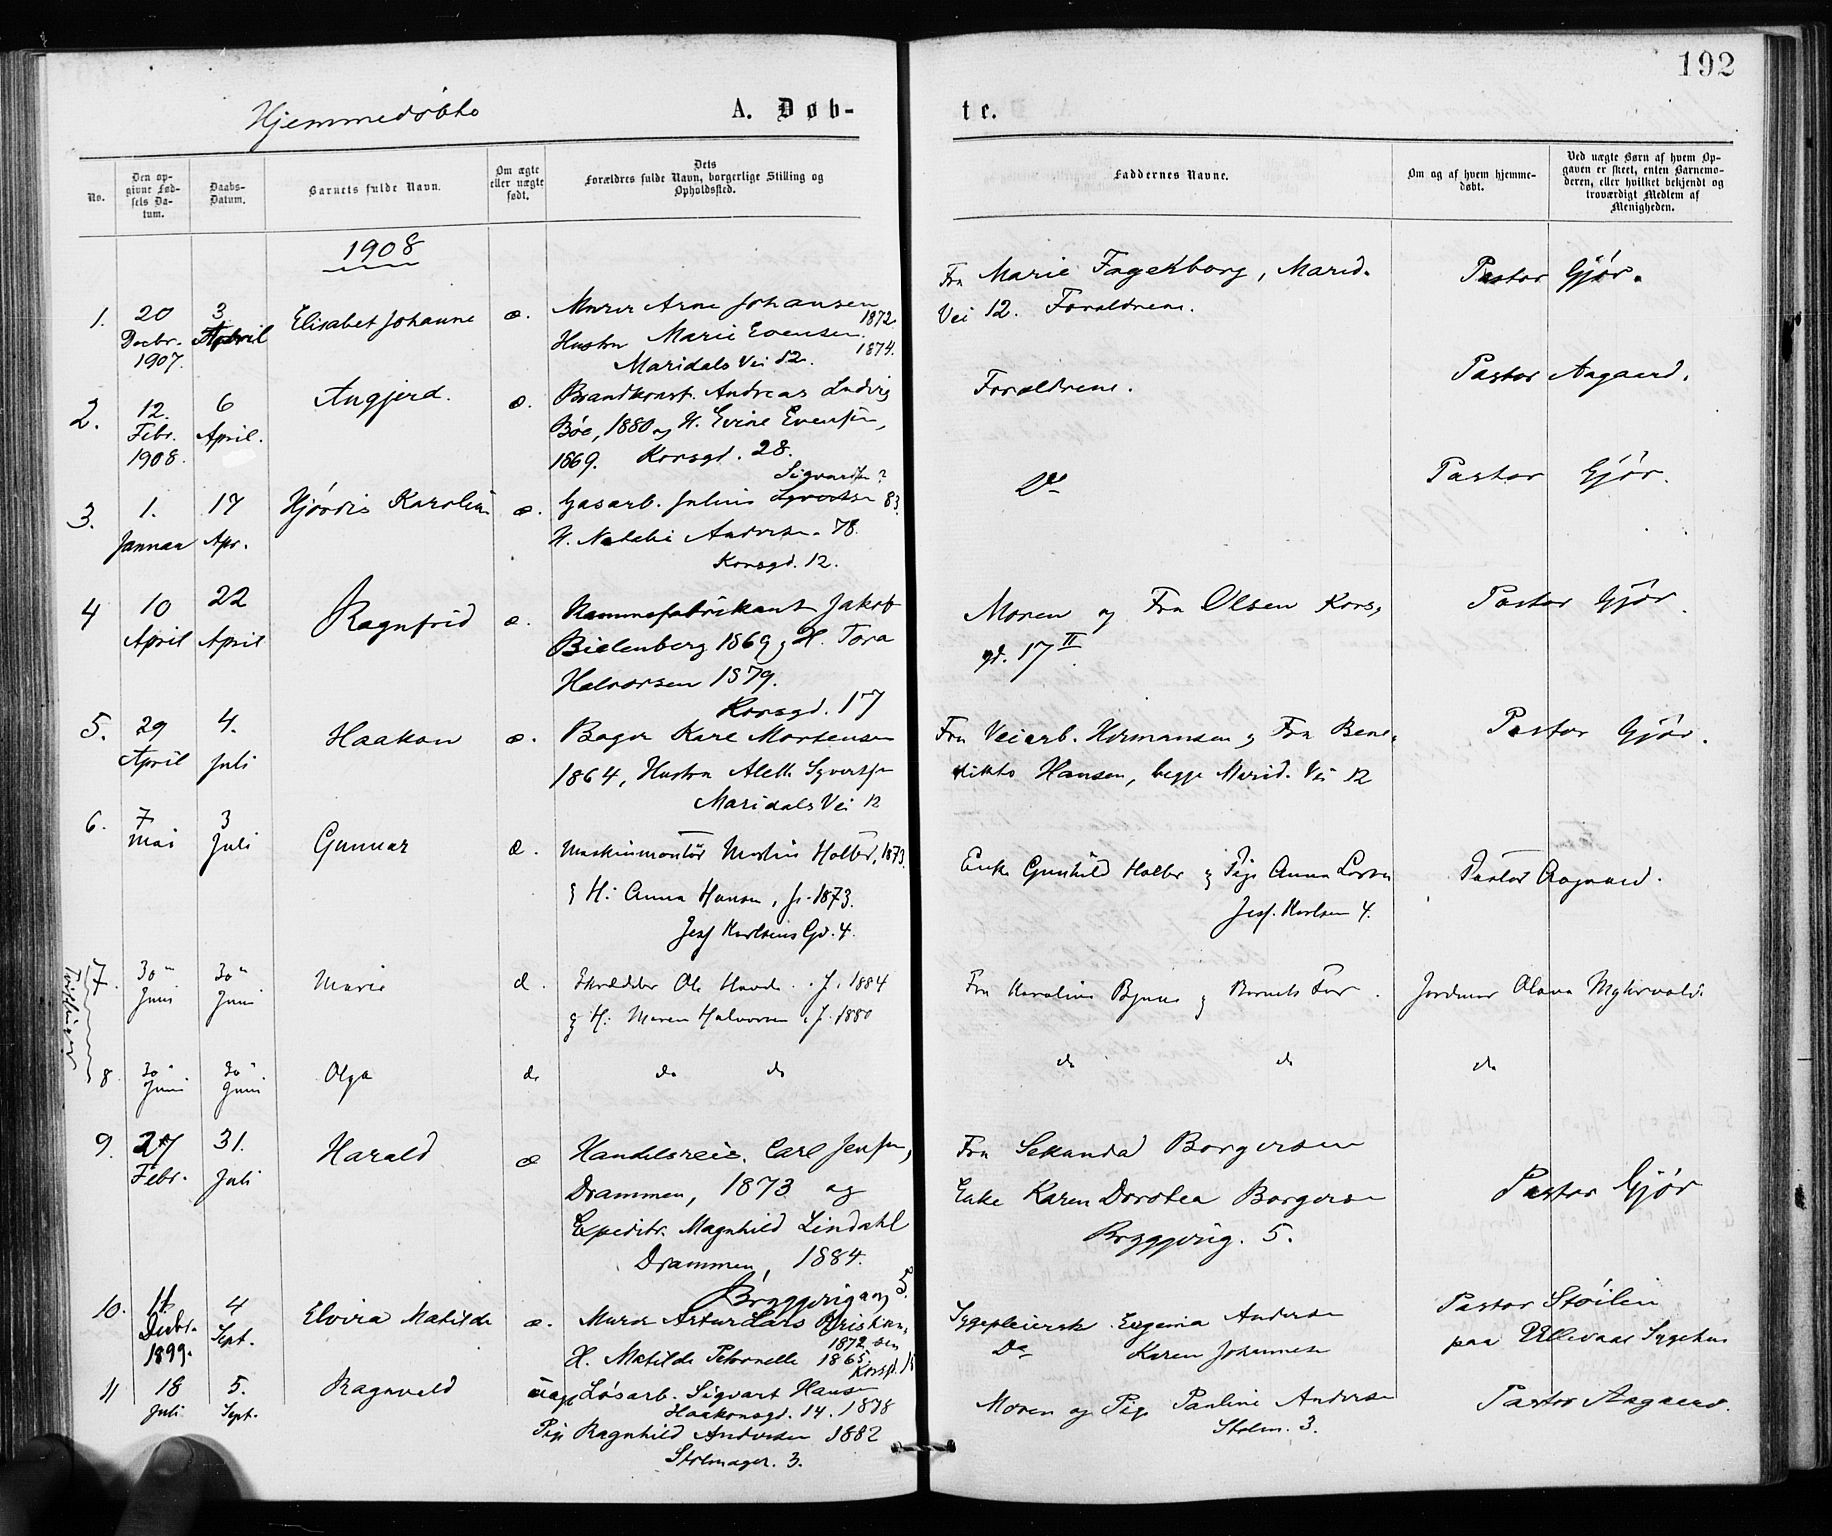 192
Hjemmedøbte
A. Døb-
te.
No.
Den op-
givne Fød-
sels Da-
tum.
Daabs-
Datum.
Barnets fulde Navn.
Om ægte
eller uægte
født.
Dets
Forældres fulde Navn, borgerlige Stilling og
Opholdssted.
Faddernes Navne.
Om og af hvem hjemme-
døbt.
Ved uægte Børn af hvem Op-
gaven er skeet, enten Barnemo-
deren, eller hvilket bekjendt og
troværdigt Medlem af
Menigheden.
1908
1.
20
Decbr.
1907.
3
April
Elisabet Johanne
æ.
Murer Arne Johansen
1872.
Hustru Marie Evensen
1874.
Maridals Vei 12.
Fru Marie Fagerborg, Marid.
Vei 12. Forældrene.
Pastor Gjør.
2.
12.
Febr.
1908.
6
April.
Angjerd.
æ.
Brandkonst. Andreas Ludvig
Bøe, 1880 og H. Evine Evensen,
1869. Korsgd. 28.
Forældrene.
Pastor Aagaard.
3.
1.
Januar
17
Apr.
Hjørdis Karoline
æ.
Sigvardsen?
Gasarb. Julius Syvertsen 83.
H. Natalie Andersen 78.
Korsgd. 12.
Do
Pastor Gjør.
4
10
April
22
April
Ragnfrid
æ.
Rammefabrikant Jakob
Bielenberg 1869 og H. Tora
Halvorsen 1879.
Korsgd. 17
Moren og Fru Olsen Kors-
gd. 17 II
Pastor Gjør.
5.
29
April
4.
Juli
Haakon
æ.
Bager Karl Mortensen
1864, Hustru Aleth Syvertsen
Maridals Vei 12
Fru Veiarb. Hermansen og Fru Bene-
dikte Hansen, begge Marid. Vei 12
Pastor Gjør.
6.
7
Mai
3
Juli
Gunnar
æ.
Maskinmontør Martin Holter, 1873.
og H: Anna Hansen, f. 1873.
Jess Karlsens Gd. 4.
Enke Gunhild Holter og Pige Anna Larsen
Jess. Karlsen 4.
Pastor Aagaard.
Tvillinger
7.
30"
Juni
30"
Juni
Marie
æ.
Skrædder Ole f. 1884
og H: Maren Halvorsen f. 1880
Fru Karoline og Barnets Far.
Jordmor Olava
8
30"
Juni
30"
Juni
Olga
do
do do
do do
do
9.
27
Febr.
31.
Juli
Harald
æ
Handelsreis. Carl Jensen,
Drammen, 1873 og
Expeditr. Magnhild Lindahl
Drammen, 1884.
Bryggerigang 5.
Fru Sekunda Borgersen
Enke Karen Dorotea Borgersen
Bryggerig. 5.
Pastor Gjør
10.
11.
Decbr.
1899.
4
Sept.
Elvira Matilde
æ.
Murer Artur Lars
1872
H. Matilde Petronelle 1865.
Korsgd.
Sygepleierske Eugenia Andersen
Do Karen Johannesen
Pastor Støilen
paa Ullevaal Sygehus
11
18
Juli
5.
Sept.
Ragnvald
uægt
Løsarb. Sigvart Hansen
Haakonsgd. 14. 1878
Pige Ragnhild Andersen 1882
Stolmager. 3.
Moren og Pige Pauline Andersen
Stolm. 3.
Pastor Aagaard.